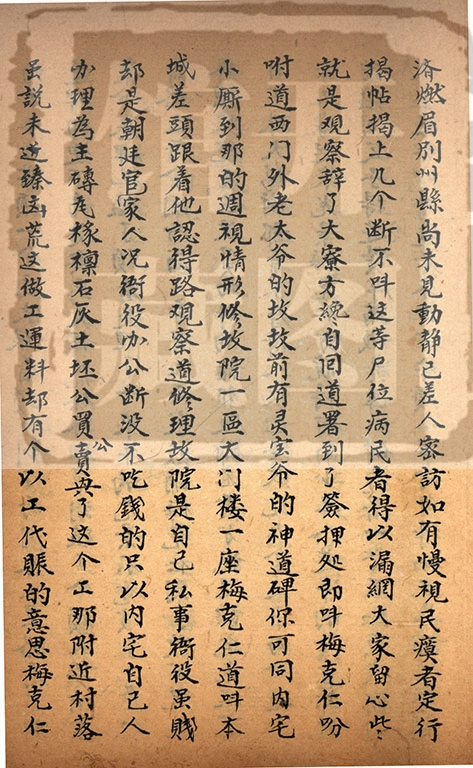 済燃眉別州縣尚未見動静已差人密訪如有慢視民瘼者定行
揭帖揭上几个断不呌这等尸位病民者得以漏網大家留心些々
就是观察辞了大寮方纔自回道署到了簽押处即呌梅克仁吩
咐道西门外老太爷的坟坟前有灵宝爷的神道碑你可同内宅
小厮到那的週視情形修坟院一區大门楼一座梅克仁道呌本
城差頭跟着他認得路观察道修理坟院是自己私事衙役虽賤
却是朝廷官家人况衙役办公断没不吃錢的只以内宅自己人
办理為主磚瓦椽檁石灰土坯公買公賣與了这个工那附近村落
虽説未边臻凶荒这做工運料却有个以工代賑的意思梅克仁